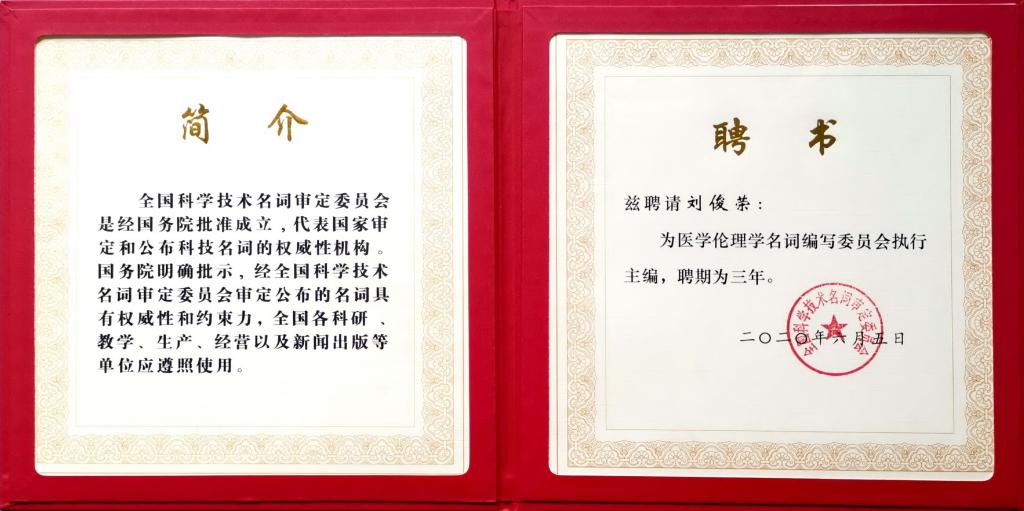 简 介
全国科学技术名词审定委员会
是经国务院批准成立，代表国家审
定和公布科技名词的权威性机构。
国务院明确批示，经全国科学技术
名词审定委员会审定公布的名词具
有权威性和约束力，全国各科研、
教学、生产、经营以及新闻出版等
单位应遵照使用。
聘 书
兹聘请刘俊荣：
为医学伦理学名词编写委员会执行
主编，聘期为三年。
全国科学技术名词审定委员会
二〇二〇年六月五日